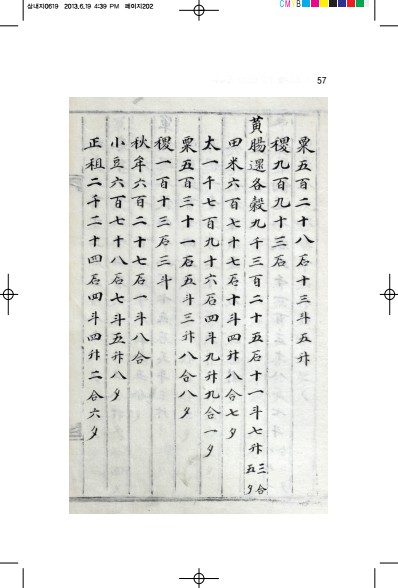 삼내지0619 2013.6.19 4:39 PM 페이지202
57
粟五百二十八石十三斗五升
稷九百九十三石
黃膓還各穀九千三百二十五石十一斗七升三合五夕
田米六百七十七石十斗四升八合七夕
太一千七百九十六石四斗九升九合一夕
粟五百三十一石五斗三升八合八夕
稷一百十三石三斗
秋牟六百二十七石一斗八合
小豆六百七十八石七斗五升八夕
正租二千二十四石四斗四升二合六夕